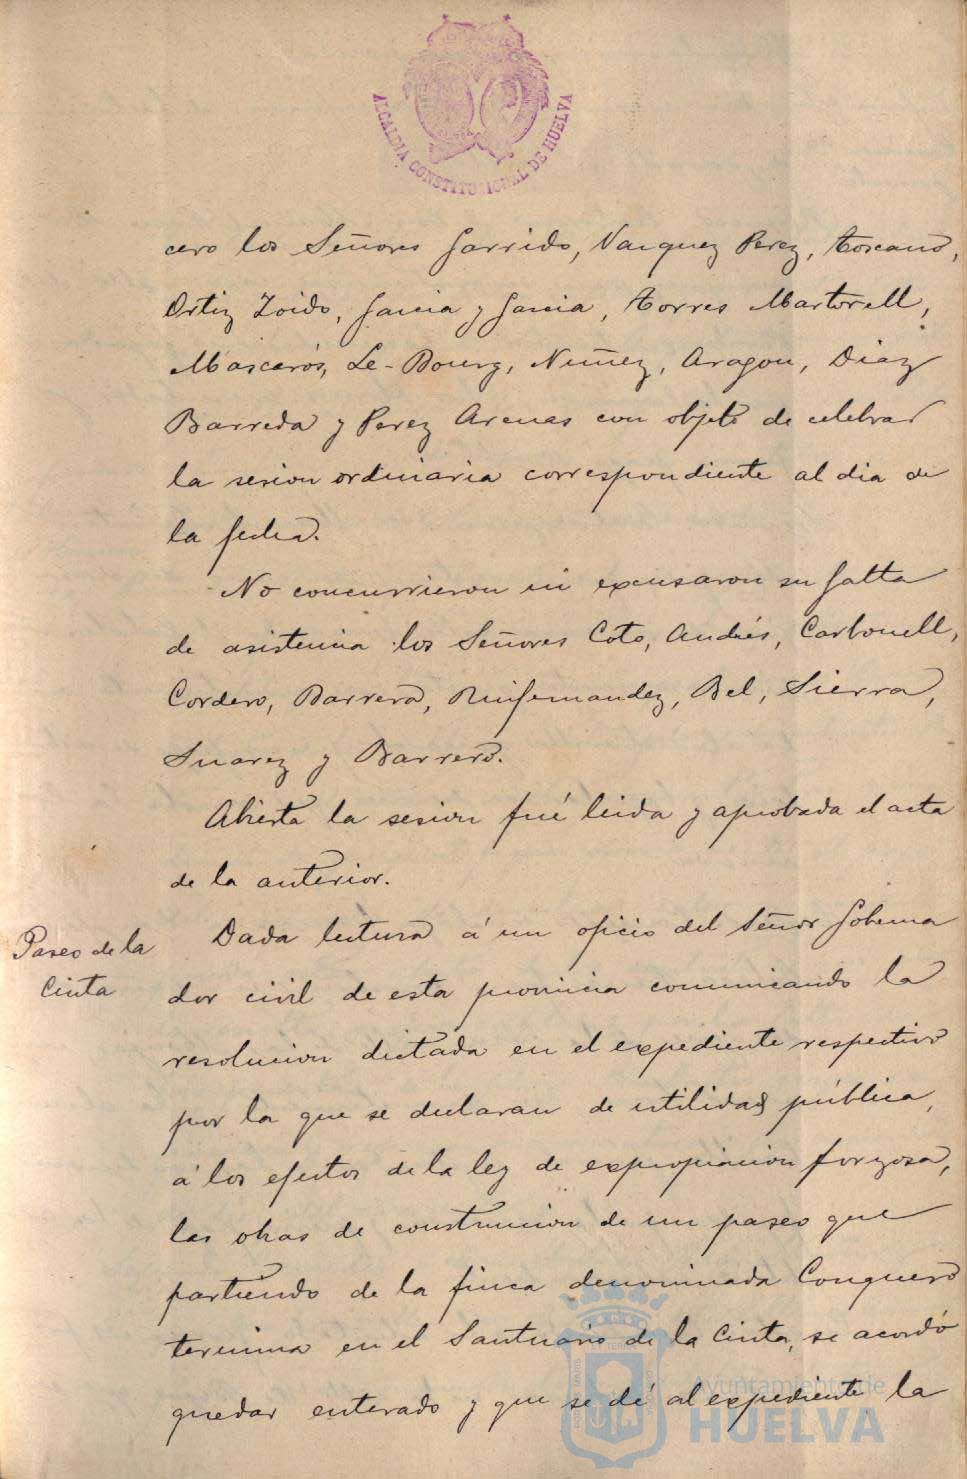 ALCALDIA CONSTITUCIONAL DE HUELVA
cero los Señores Garrido, Vazquez Perez, Toscano,
Ortiz Zoido, Garcia y Garcia, Torres Martorell,
Mascarós, Le-Bourg, Nuñez, Aragon, Diaz
Barreda y Perez Arenas con objeto de celebrar
la sesion ordinaria correspondiente al dia de
la fecha.
No concurrieron ni excusaron su falta
de asistencia los Señores Coto, Andrés, Carbonell,
Cordero, Barrera, Ruifernandez, Bel, Sierra,
Suarez y Barrero.
Abierta la sesion fué leida y aprobada el acta
de la anterior.
Paseo de la
Cinta
Dada lectura á un oficio del Señor Goberna
dor civil de esta provincia comunicando la
resolucion dictada en el expediente respectivo
por la que se declaran de utilidad pública,
á los efectos de la ley de expropiacion forzosa,
las obras de construccion de un paseo que
partiendo de la finca denominada Conquero
termina en el Santuario de la Cinta, se acordó
quedar enterado y que se dé al expediente la
Ayuntamiento de
HUELVA